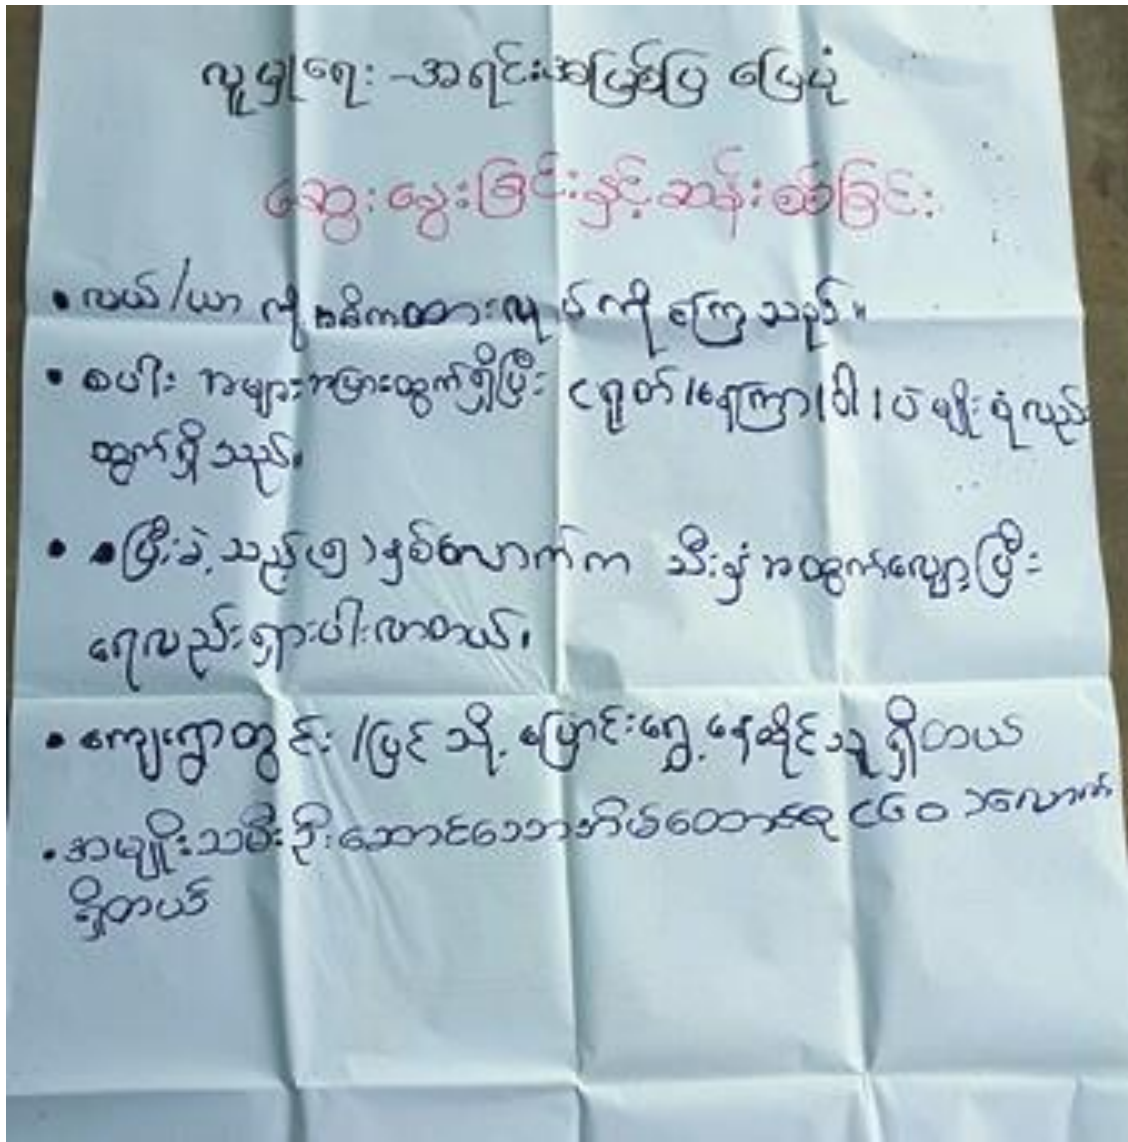 လူမှုရေး-အရင်းအမြစ်ပြ မြေပုံ
ဆွေးနွေးခြင်းနှင့်ဆန်းစစ်ခြင်း
• လယ်/ယာ ကို အဓိကထားလုပ်ကိုကြသည်။
• စပါး အများအပြားထွက်ရှိပြီး ငရုတ်/နေကြာ/ဝါ/ပဲမျိုးစုံလည်း
ထွက်ရှိသည်။
• ပြီးခဲ့သည့်(၅)နှစ်လောက်က သီးနှံအထွက်လျော့ပြီး
ရေလည်းရှားပါးလာတယ်။
• ကျေးရွာတွင်း/ပြင်သို့ ပြောင်းရွှေ့နေထိုင်သူရှိတယ်
• အမျိုးသမီးဦးဆောင်သောအိမ်ထောင်စု (၆၀)လောက်
ရှိတယ်